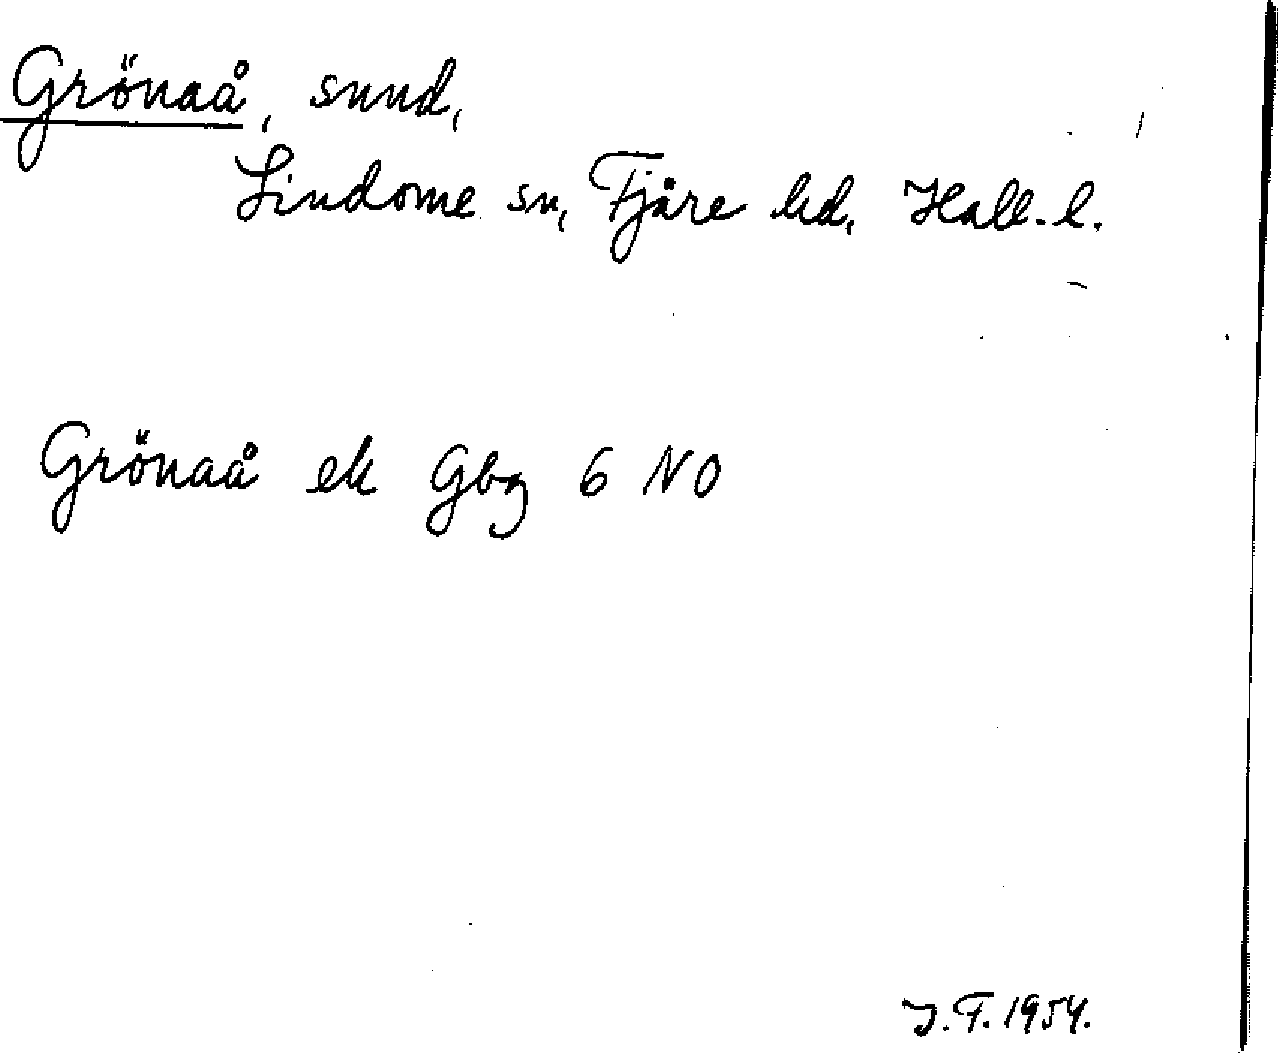 Grönaå, sund,
Lindome sn, Fjäre hd, Hall. l.
Grönaå ek Gbg 6 NO
J. F. 1954.